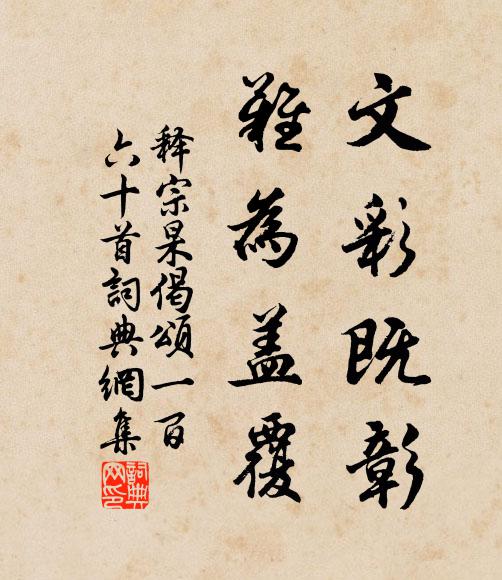 文彩既彰
難為盖覆
释宗杲偈頌一百
六十首詞典網集
詞典
网印